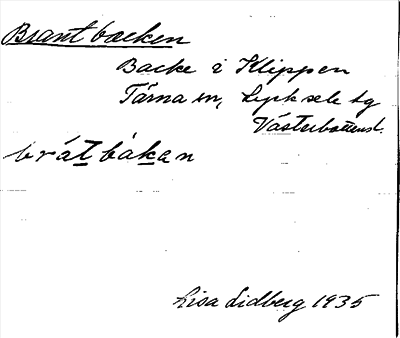 Brantbacken
Backe i Klippen
Tärna sn, Lycksele lg
Västerbottensl.
brátbákan
Lisa Lidberg 1935